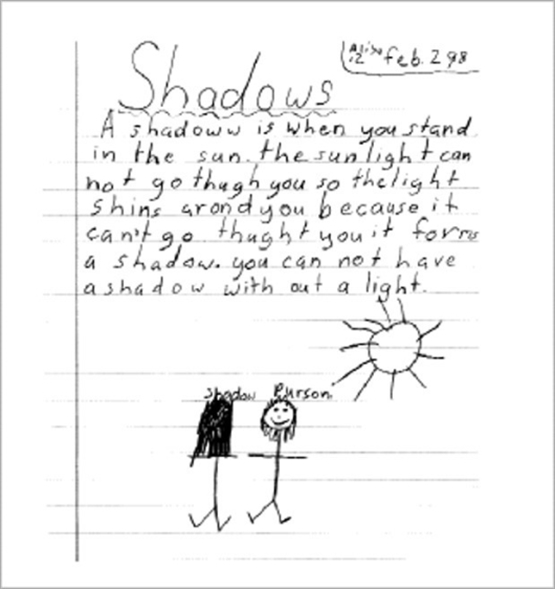 Alisa feb. 2 98
12
Shadows
A shadoww is when you stand
in the sun. the sun light can
not go thugh you so the light
shins arond you because it
can't go thught you it forms
a shadow. you can not have
a shadow with out a light.
shadow Purson